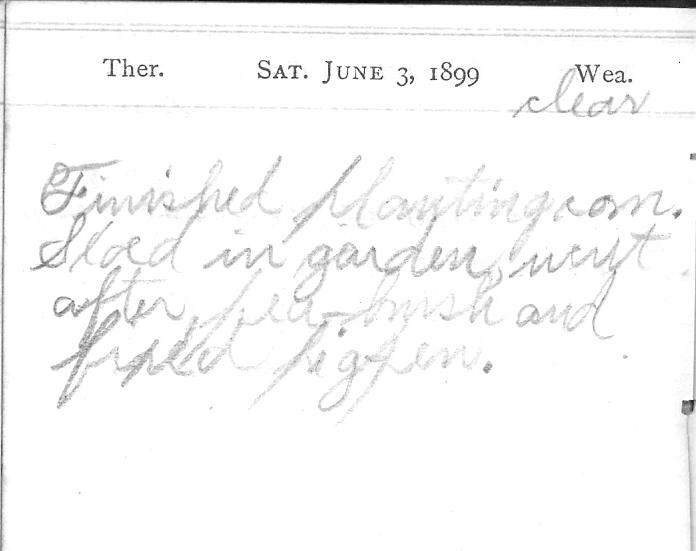 Ther. SAT. JUNE 3, 1899 Wea.
clear
Finished planting corn.
in garden, went
after pea-brush and
fixed pigpen.